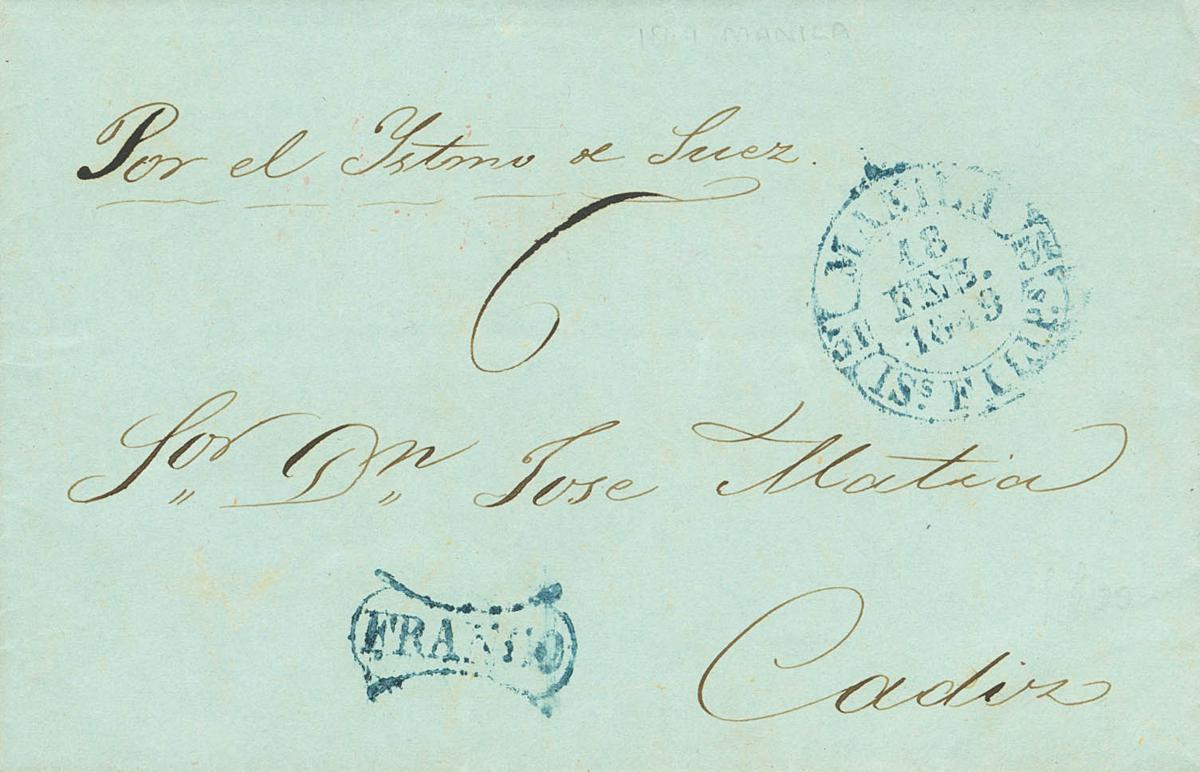 MANILA
Por el Ystmo de Suez.
MANILA
18
FEB.
1848
YSLs. FILIPs.
6
Sor. Dn. Jose Matia
FRANCO
Cadiz